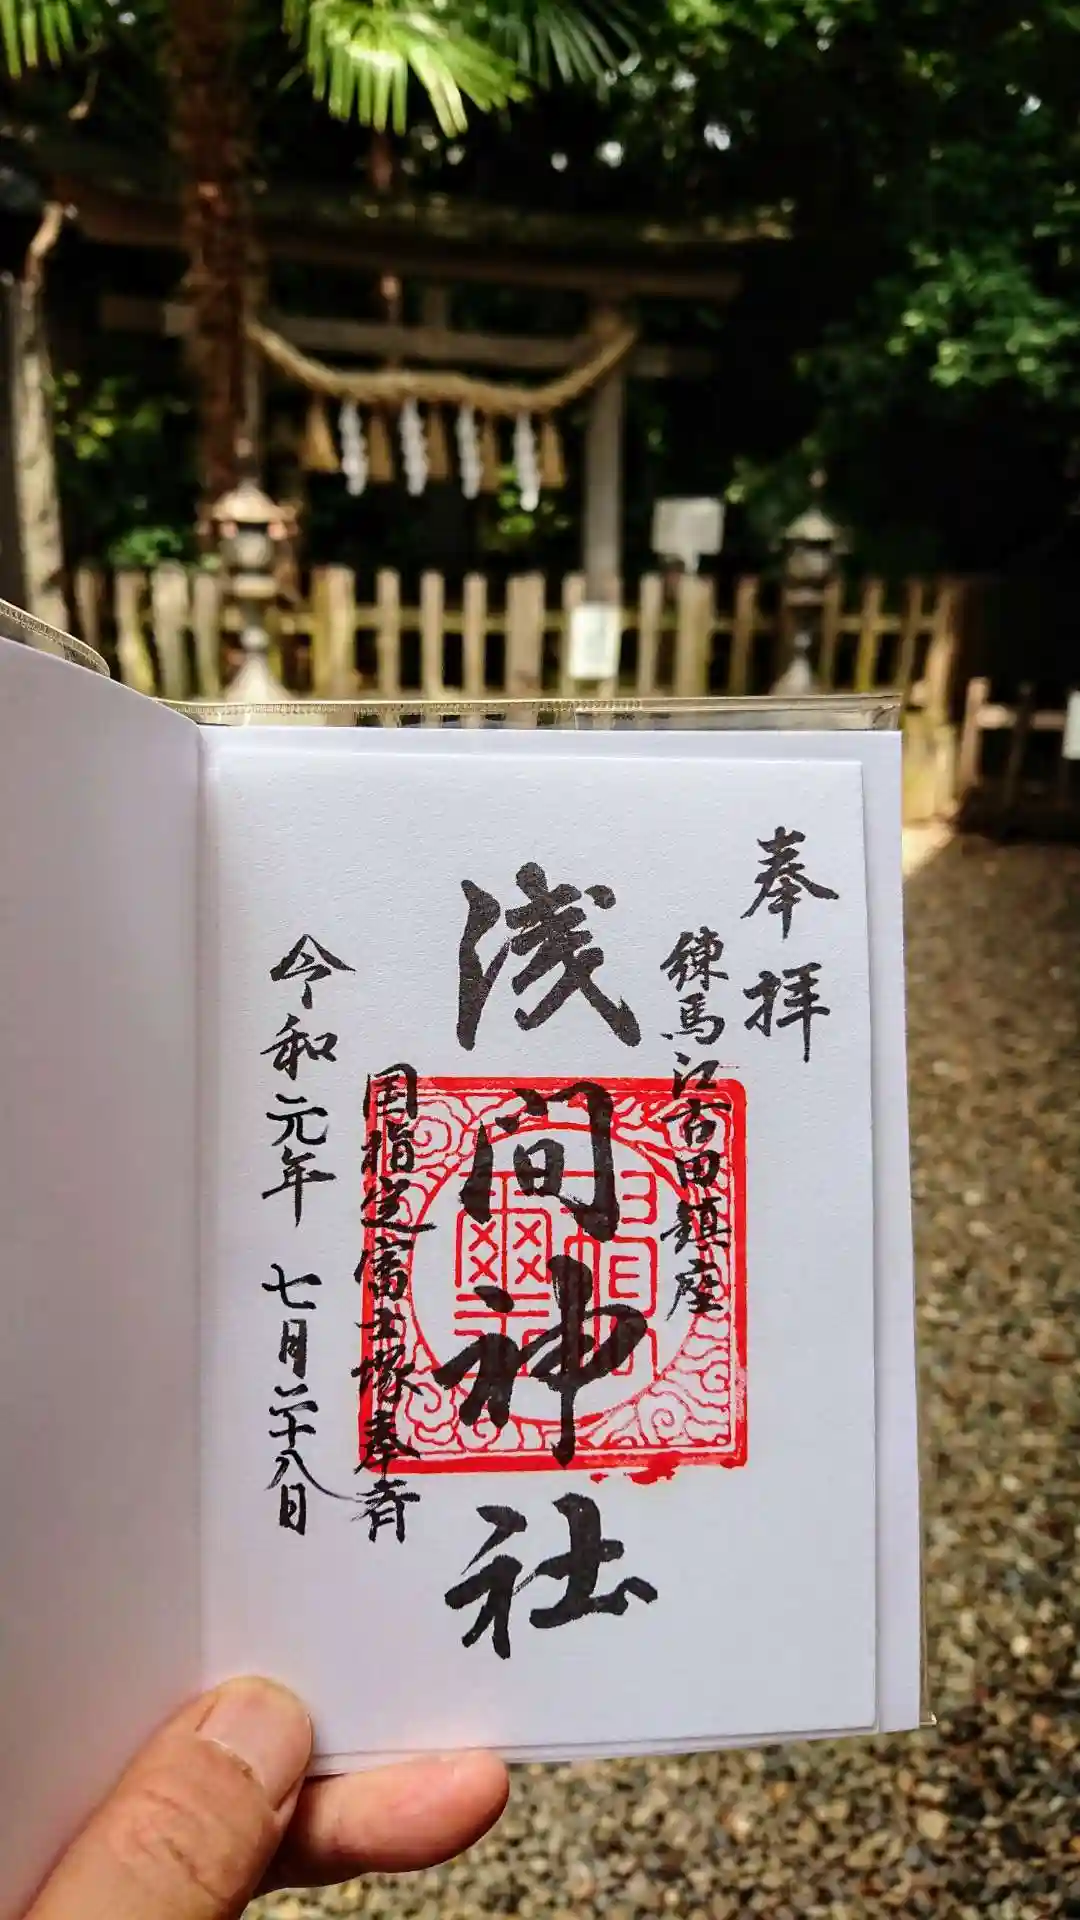 奉拝
練馬江古田鎮座
浅間神社
国指定富士塚奉斉
令和元年 七月二十八日